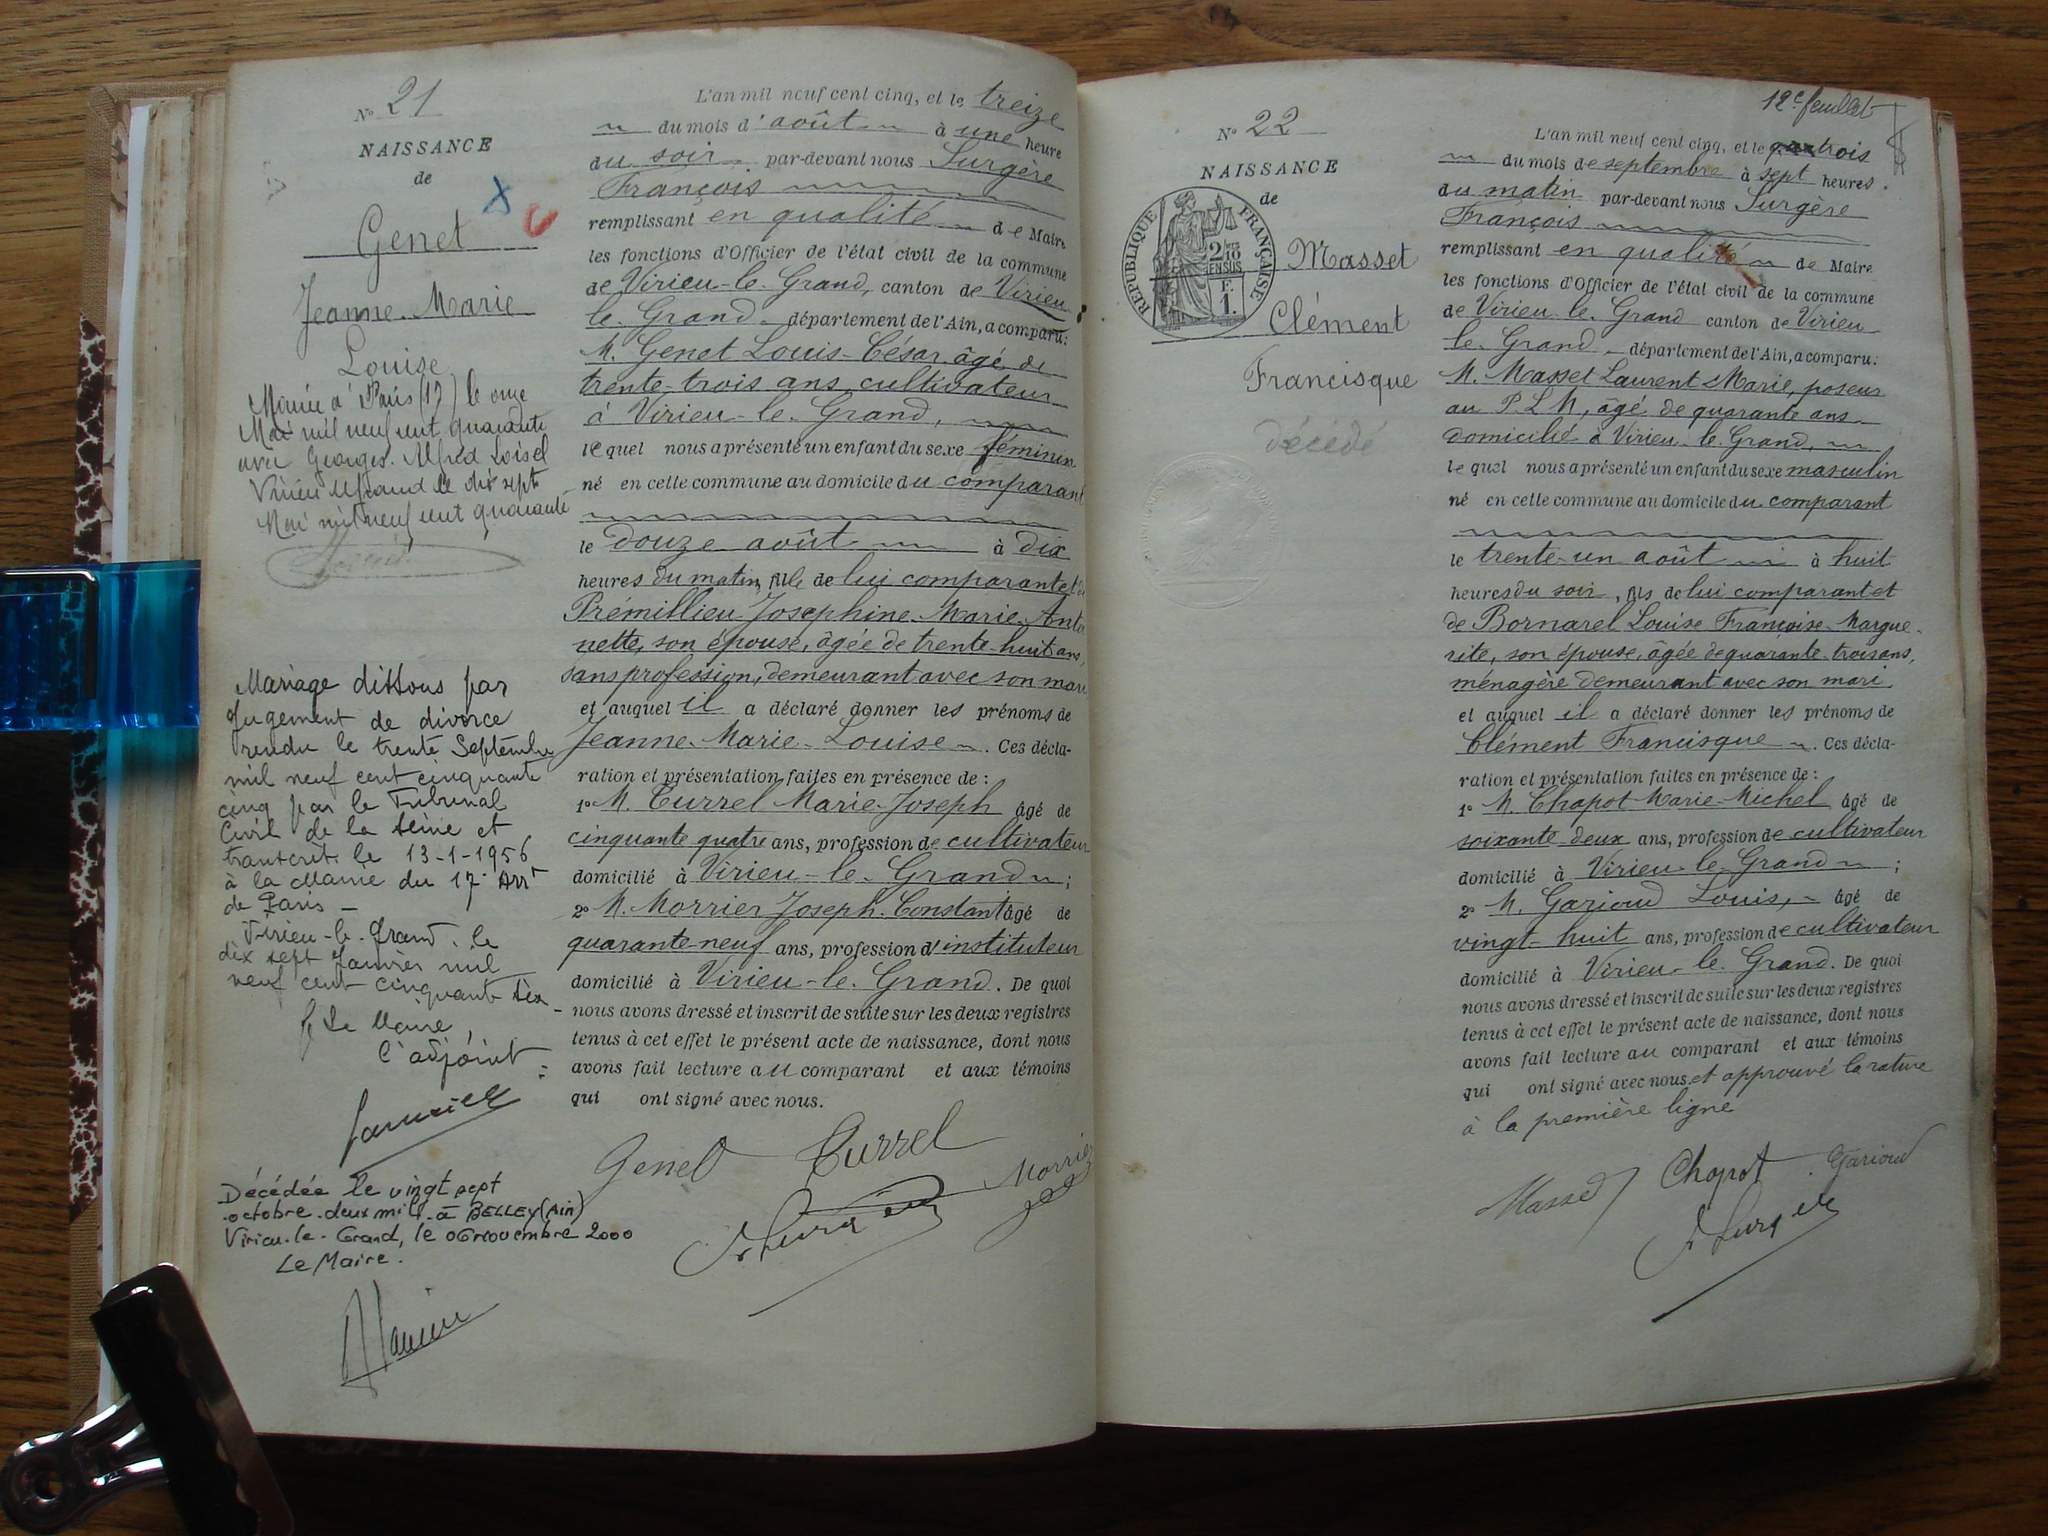 No 21
NAISSANCE
de
Genet
Jeanne-Marie
Louise
Mariée à Paris (17) le onze
Mai mil neuf cent quarante
avec Georges Alfred Loisel
Virieu le grand le dix sept
Mai mil neuf cent quarante
Mariage dissous par
Jugement de divorce
rendu le trente Septembre
mil neuf cent cinquante
cinq par le Tribunal
Civil de la Seine et
transcrit le 13-1-1956
à la Mairie du 17e Arrt
de Paris -
Virieu-le-Grand, le
dix sept Janvier mil
neuf cent cinquante six
P. Le Maire,
L'adjoint :
Décédée le vingt sept
octobre deux mil à BELLEY (Ain)
Virieu-le-Grand, le 06 novembre 2000
Le Maire.
L'an mil neuf cent cinq, et le treize
du mois d'août à une heure
du soir par-devant nous Surgère
François
remplissant en qualité de Maire
les fonctions d'Officier de l'état civil de la commune
de Virieu-le-Grand, canton de Virieu
le-Grand département de l'Ain, a comparu:
M. Genet Louis-César âgé de
trente-trois ans, cultivateur
à Virieu-le-Grand,
lequel nous a présenté un enfant du sexe féminin
né en cette commune au domicile du comparant
le douze août à dix
heures du matin, fille de lui comparant et de
Prémillieu Josephine-Marie-Antoi
nette, son épouse, âgée de trente-huit ans,
sans profession, demeurant avec son mari
et auquel il a déclaré donner les prénoms de
Jeanne-Marie-Louise. Ces décla-
ration et présentation faites en présence de :
1o M. Currel Marie-Joseph âgé de
cinquante quatre ans, profession de cultivateur
domicilié à Virieu-le-Grand ;
2o M. Morrier Joseph-Constant âgé de
quarante-neuf ans, profession d'instituteur
domicilié à Virieu-le-Grand. De quoi
nous avons dressé et inscrit de suite sur les deux registres
tenus à cet effet le présent acte de naissance, dont nous
avons fait lecture au comparant et aux témoins
qui ont signé avec nous.
Genet Currel Morrier
12e feuillet
No 22
NAISSANCE
de
RÉPUBLIQUE FRANÇAISE
2/10 EN SUS
F.
1.
Masset
Clément
Francisque
décédé
L'an mil neuf cent cinq, et le trois
du mois de septembre à sept heures
du matin par-devant nous Surgère
François
remplissant en qualité de Maire
les fonctions d'Officier de l'état civil de la commune
de Virieu-le-Grand canton de Virieu
le-Grand département de l'Ain, a comparu:
M. Masset Laurent-Marie, poseur
au P.L.M, âgé de quarante ans
domicilié à Virieu-le-Grand,
lequel nous a présenté un enfant du sexe masculin
né en cette commune au domicile du comparant
le trente-un août à huit
heures du soir, fils de lui comparant et
de Bornarel Louise Françoise-Margue-
rite, son épouse, âgée de quarante-trois ans,
ménagère demeurant avec son mari
et auquel il a déclaré donner les prénoms de
Clément Francisque. Ces décla-
ration et présentation faites en présence de :
1o M. Chapot Marie-Michel âgé de
soixante-deux ans, profession de cultivateur
domicilié à Virieu-le-Grand ;
2o M. Garioud Louis, âgé de
vingt-huit ans, profession de cultivateur
domicilié à Virieu-le-Grand. De quoi
nous avons dressé et inscrit de suite sur les deux registres
tenus à cet effet le présent acte de naissance, dont nous
avons fait lecture au comparant et aux témoins
qui ont signé avec nous et approuvé la rature
à la première ligne
Masset Chapot Garioud
Surgère